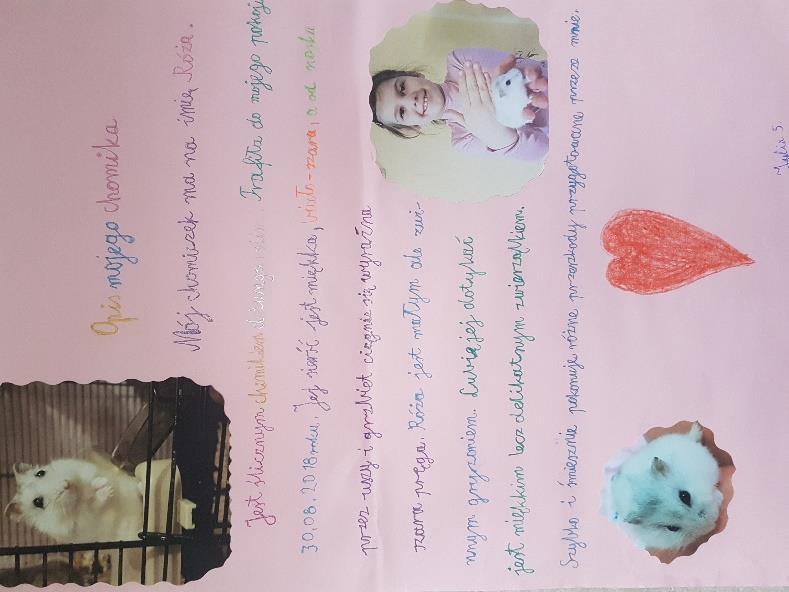 Opis mojego chomika
Mój chomiczek ma na imię Róża.
Jest ślicznym chomikiem Trafiła do mojego pokoju
30.08.2018 roku. Jej sierść jest miękka, biało-szara, a od noska
przez uszy i grzbiet ciągnie się wyraźna
szara pręga. Róża jest małym ale zwi-
nnym gryzoniem. Lubię jej dotykać
jest miękkim lecz delikatnym zwierzątkiem.
Szybko i śmiesznie pokonuje różne przeszkody przygotowane przeze mnie.
Julia S.